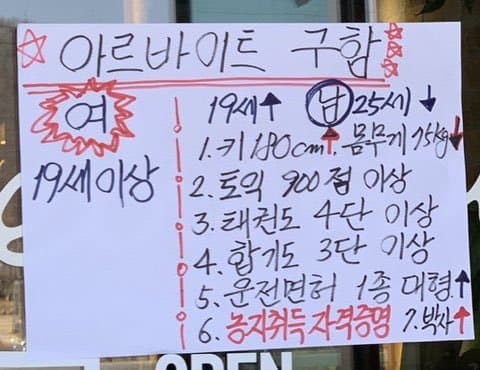 아르바이트 구함
여
19세이상
19세↑ 남 25세↓
1. 키 180cm↑. 몸무게 75kg↓
2. 토익 900점 이상
3. 태권도 4단 이상
4. 합기도 3단 이상
5. 운전면허 1종 대형↑
6. 농지취득자격증명 7. 박사↑
OPEN